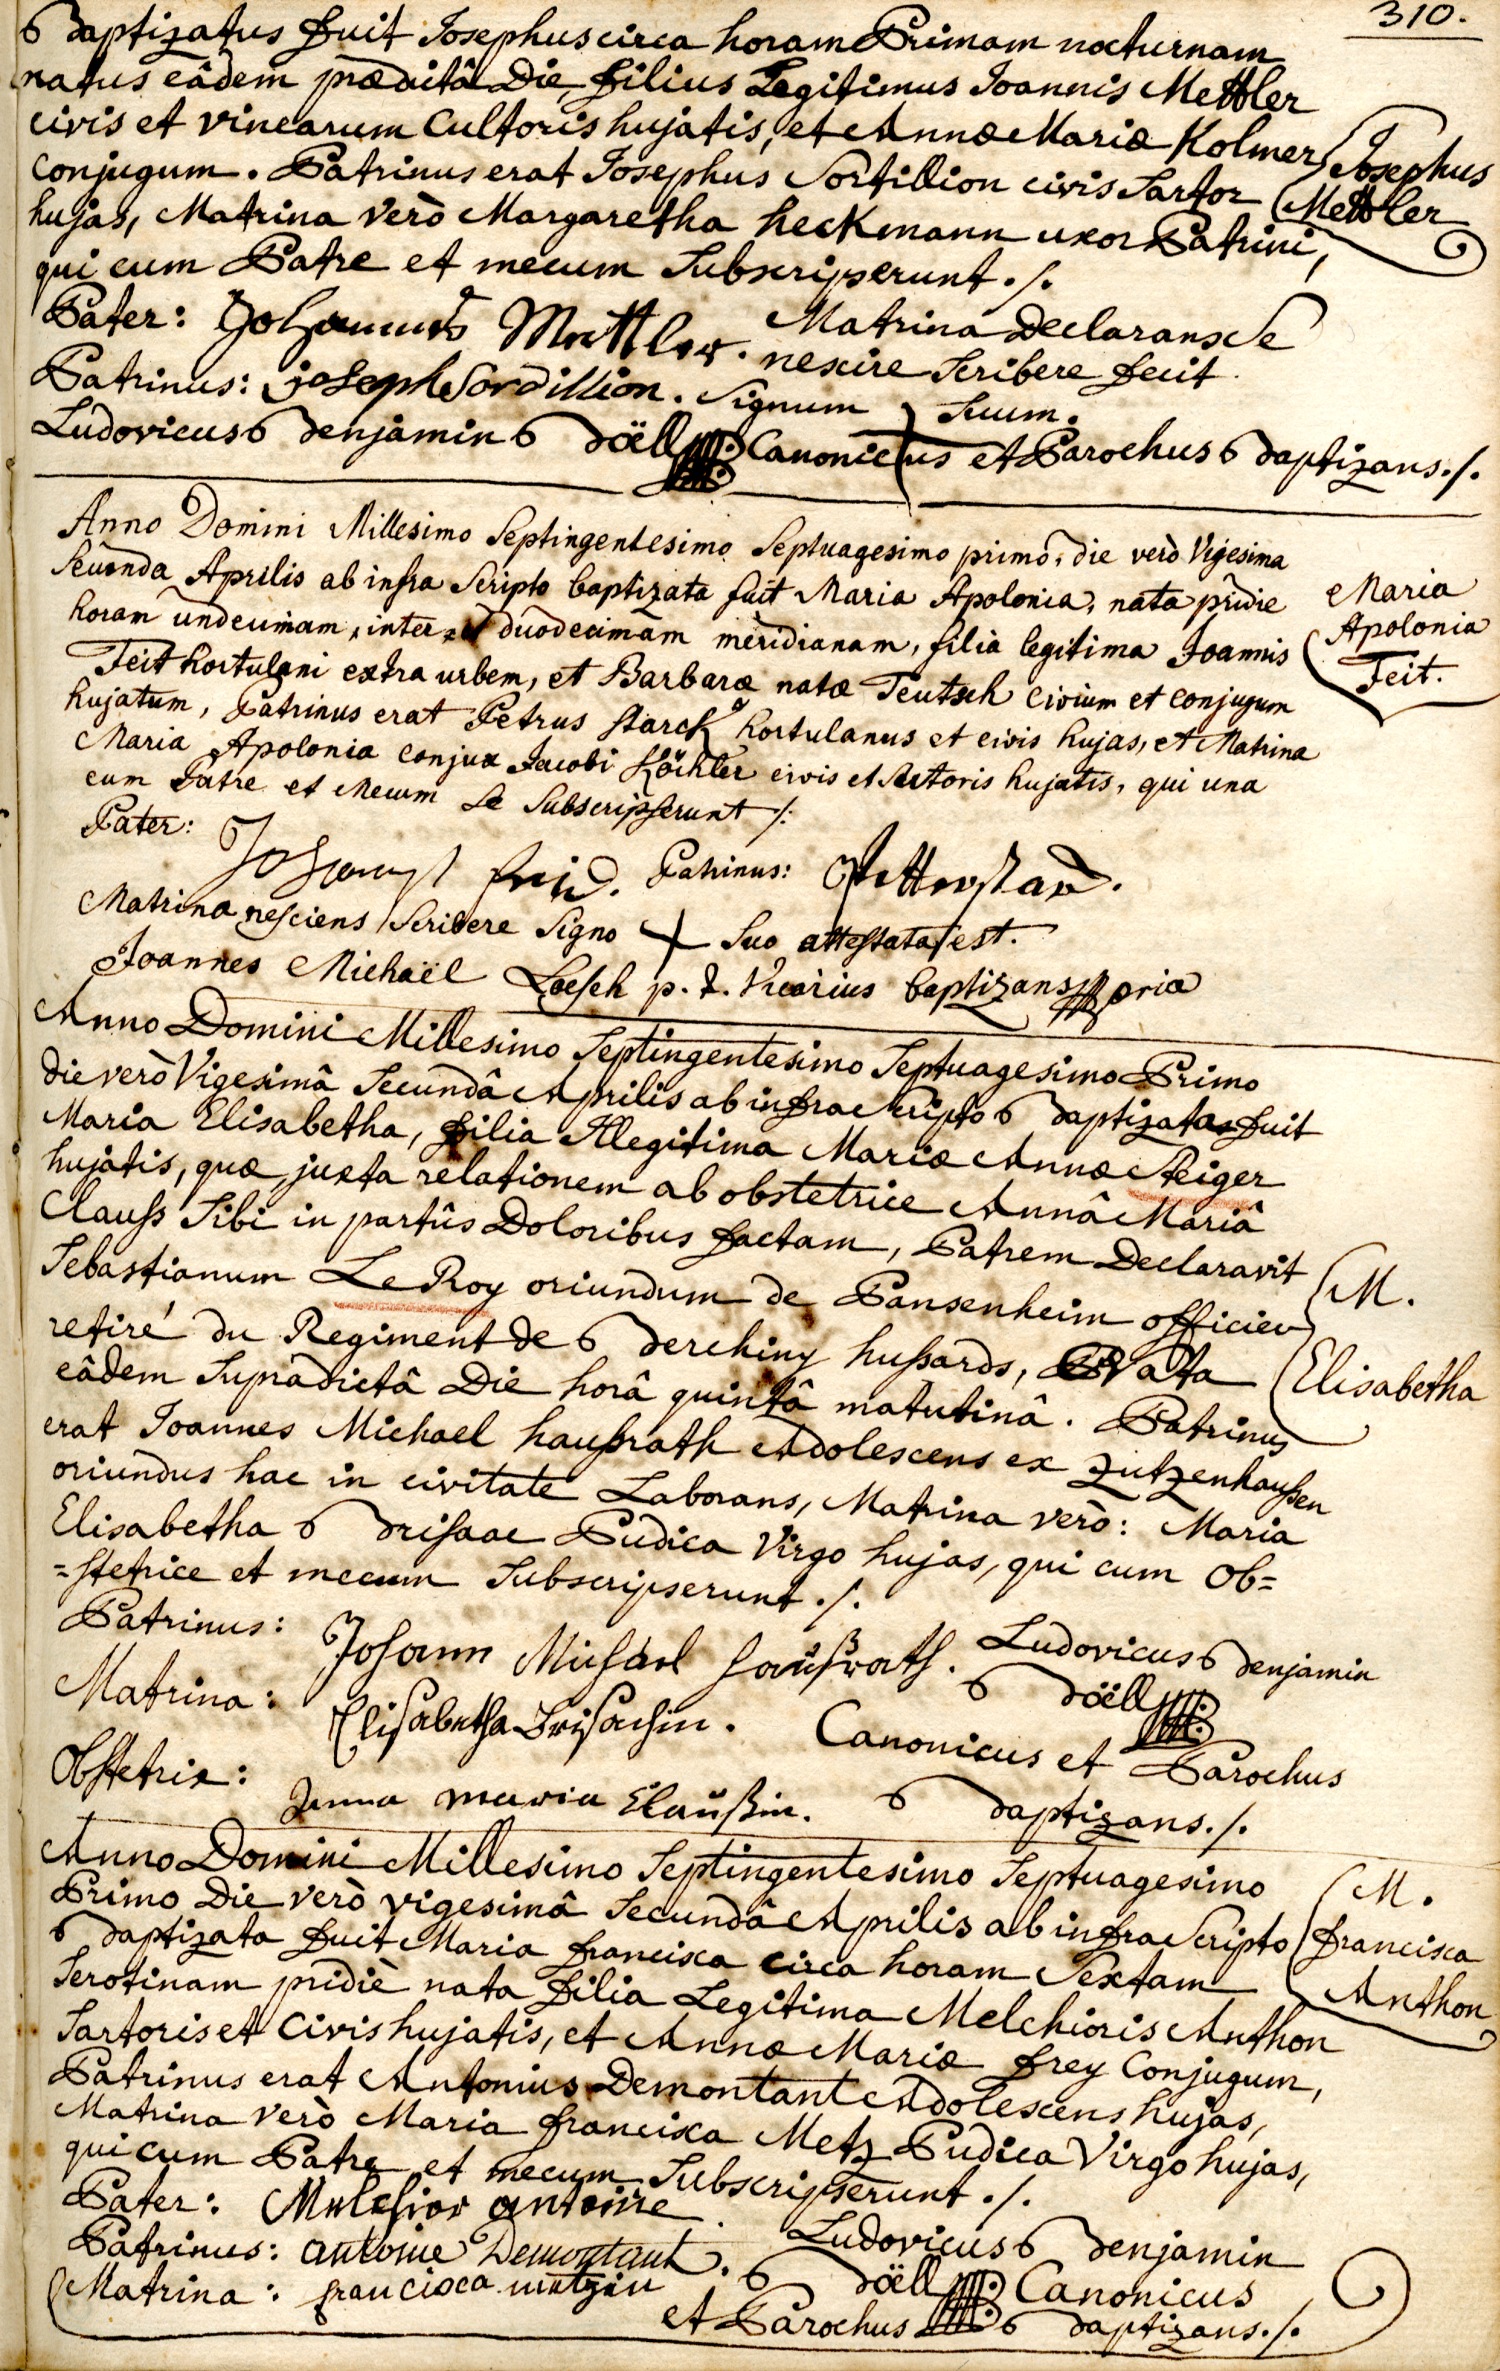 310.
Baptizatus fuit Josephus circa horam Primam nocturnam
natus eâdem prædictâ Die, filius Legitimus Joannis Mettler
civis et vinearum Cultoris hujatis, et Annæ Mariæ Kolmer
conjugum. Patrinus erat Josephus Sortillion civis Sartor
hujas, Matrina verò Margaretha heckmann uxor Patrini,
qui cum Patre et mecum Subscripserunt ./.
Josephus
Mettler
Pater: Johannes Mettler. Matrina Declarans Se
nescire Scribere fecit
Patrinus: joseph Sordillion. Signum Suum.
Ludovicus Benjamin Böell Canonicus et Parochus Baptizans ./.
Anno Domini Millesimo Septingentesimo Septuagesimo primo, die verò Vigesima
Secunda Aprilis ab infra Scripto baptizata fuit Maria Apolonia, nata pridie
horam undecimam, inter et duodecimam meridianam, filia legitima Joannis
Feit hortulani extra urbem, et Barbaræ natæ Teutsch civium et conjugum
hujatum, Patrinus erat Petrus Starck hortulanus et civis hujas, et Matrina
Maria Apolonia conjux Jacobi Köchler civis et Sartoris hujatis, qui una
cum Patre et Mecum Se Subscripserunt ./.
Maria
Apolonia
Feit.
Pater: Patrinus:
Matrina nesciens Scribere Signo + Suo attestata est.
Joannes Michaël Loesch p. t. Vicarius baptizans pria
Anno Domini Millesimo Septingentesimo Septuagesimo Primo
die verò Vigesimâ Secundâ Aprilis ab infra Scripto Baptizata fuit
Maria Elisabetha, filia Illegitima Mariæ Annæ Steiger
hujatis, quæ juxta relationem ab obstetrice Annâ Mariâ
Clauss Sibi in partûs Doloribus factam, Patrem Declaravit
Sebastianum Le Roy oriundum de Pansenheim officier
retiré du Regiment de Berchiny hussards, Nata
eâdem Supradictâ Die horâ quintâ matutinâ. Patrinus
erat Joannes Michael haussrath Adolescens ex Zutzenhaussen
oriundus hac in civitate Laborans, Matrina verò: Maria
Elisabetha Brisaac Pudica Virgo hujas, qui cum Ob=
=stetrice et mecum Subscripserunt ./.
M.
Elisabetha
Patrinus: Johann Michael Haussrath. Ludovicus Benjamin
Matrina: Elisabetha Brisachin. Böell
Canonicus et Parochus
Obstetrix: Anna maria Claussin. Baptizans ./.
Anno Domini Millesimo Septingentesimo Septuagesimo
Primo Die verò vigesimâ Secundâ Aprilis ab infra Scripto
Baptizata fuit Maria francisca circa horam Sextam
Serotinam pridiè nata filia Legitima Melchioris Anthon
Sartoris et Civis hujatis, et Annæ Mariæ frey Conjugum,
Patrinus erat Antonius Demontant Adolescens hujas,
Matrina verò Maria francisca Metz Pudica Virgo hujas,
qui cum Patre et mecum Subscripserunt ./.
M.
francisca
Anthon
Pater: Melchior antoine
Patrinus: antonie Demontant. Ludovicus Benjamin
Matrina: francisca metzin Böell Canonicus
et Parochus Baptizans ./.